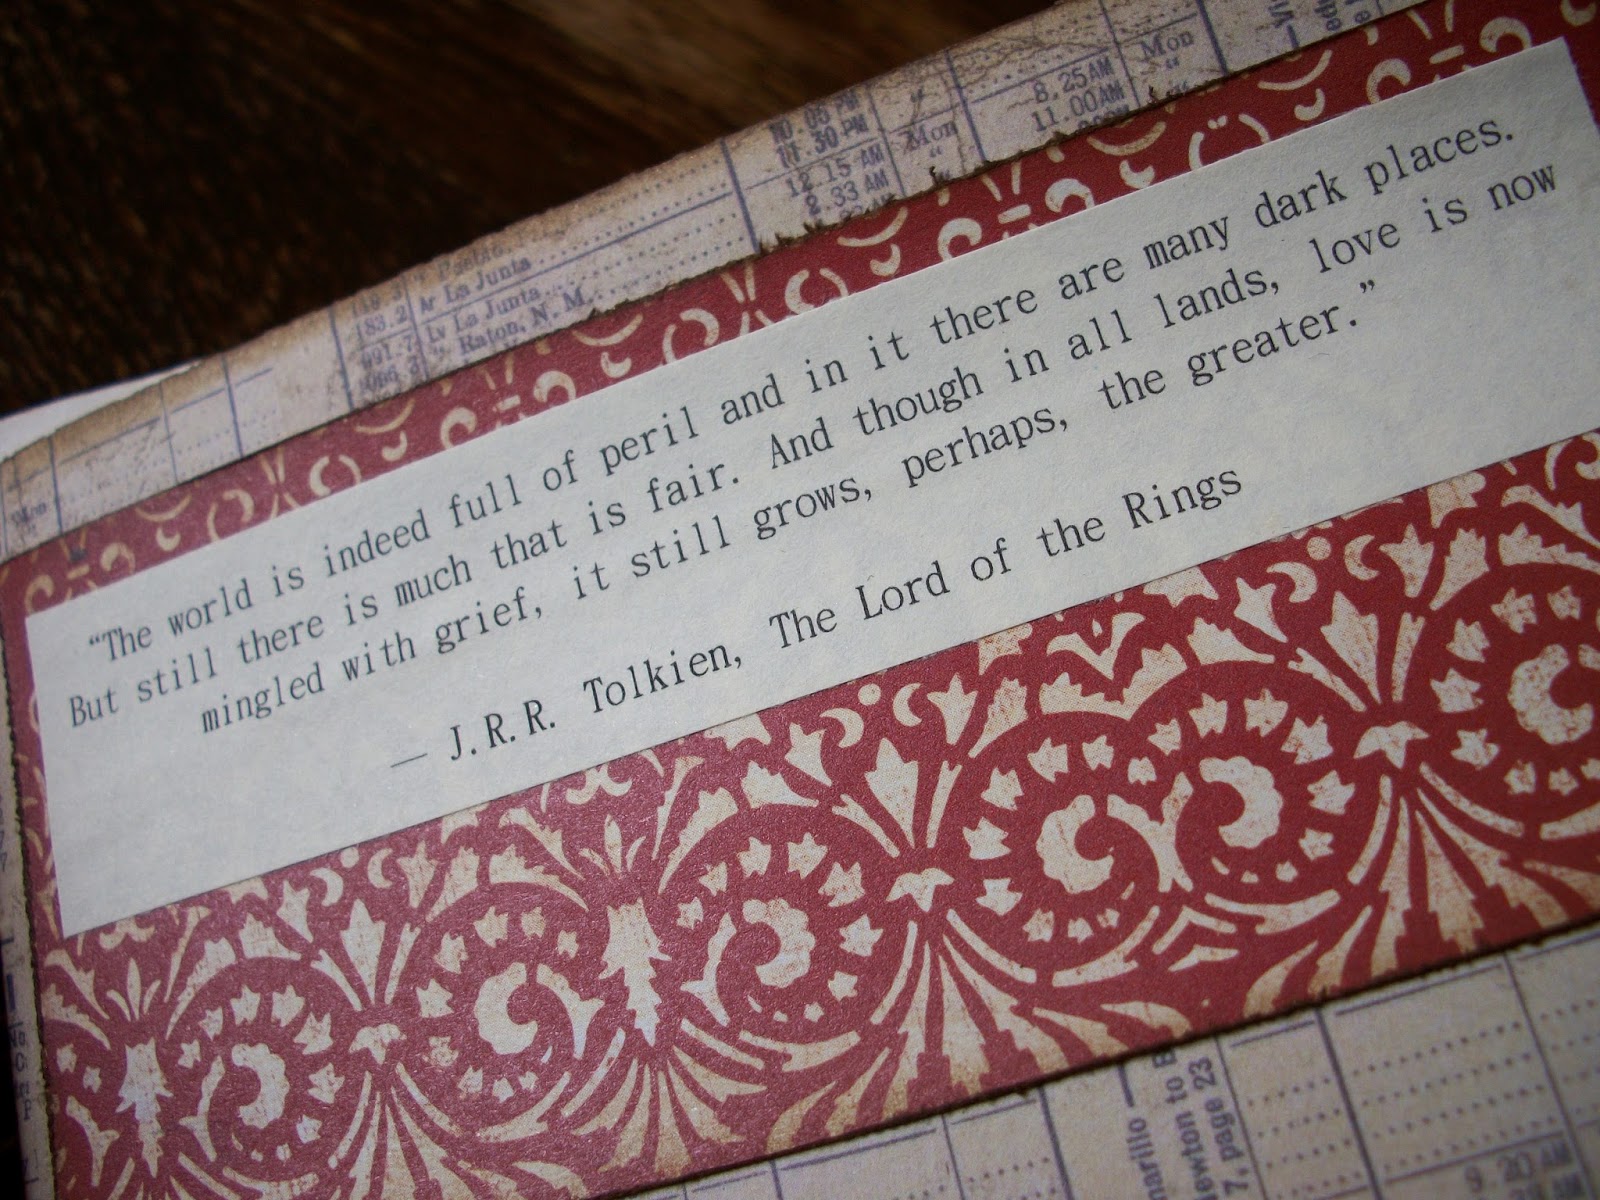 Mon
8.25 AM
11.00 AM
Mon
11.30 PM
12 15 AM
2.33 AM
Ar La Junta
183.2 Lv La Junta
991.7 " Raton, N. M.
“The world is indeed full of peril and in it there are many dark places.
But still there is much that is fair. And though in all lands, love is now
mingled with grief, it still grows, perhaps, the greater.”
— J.R.R. Tolkien, The Lord of the Rings
7, page 23
9 20 AM